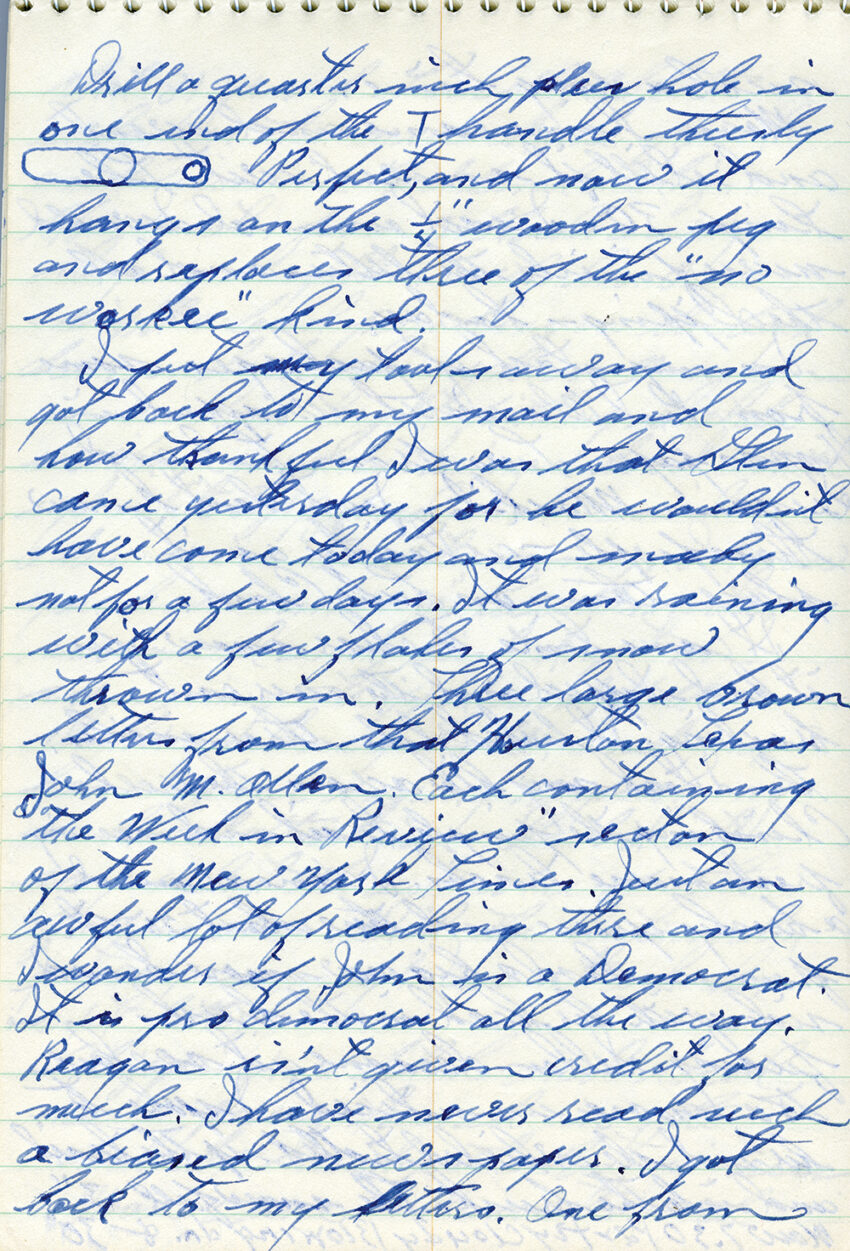 Drill a quarter inch plus hole in
one end of the T handle thusly
Perfect, and now it
hangs on the 1/4" wooden peg
and replaces three of the "no
workee" kind.
I put my tools away and
got back to my mail and
how thankful I was that Glen
came yesterday for he wouldn't
have come today and maby
not for a few days. It was raining
with a few flakes of snow
thrown in. Three large brown
letters from that Houston, Texas
John M. Allen. Each containing
the Week in Review" secton
of the New York Times. Just an
awful lot of reading there and
I wonder if John is a Democrat.
It is pro democrat all the way.
Reagan isn't given credit for
much. I have never read such
a biased newspaper. I got
back to my letters. One from